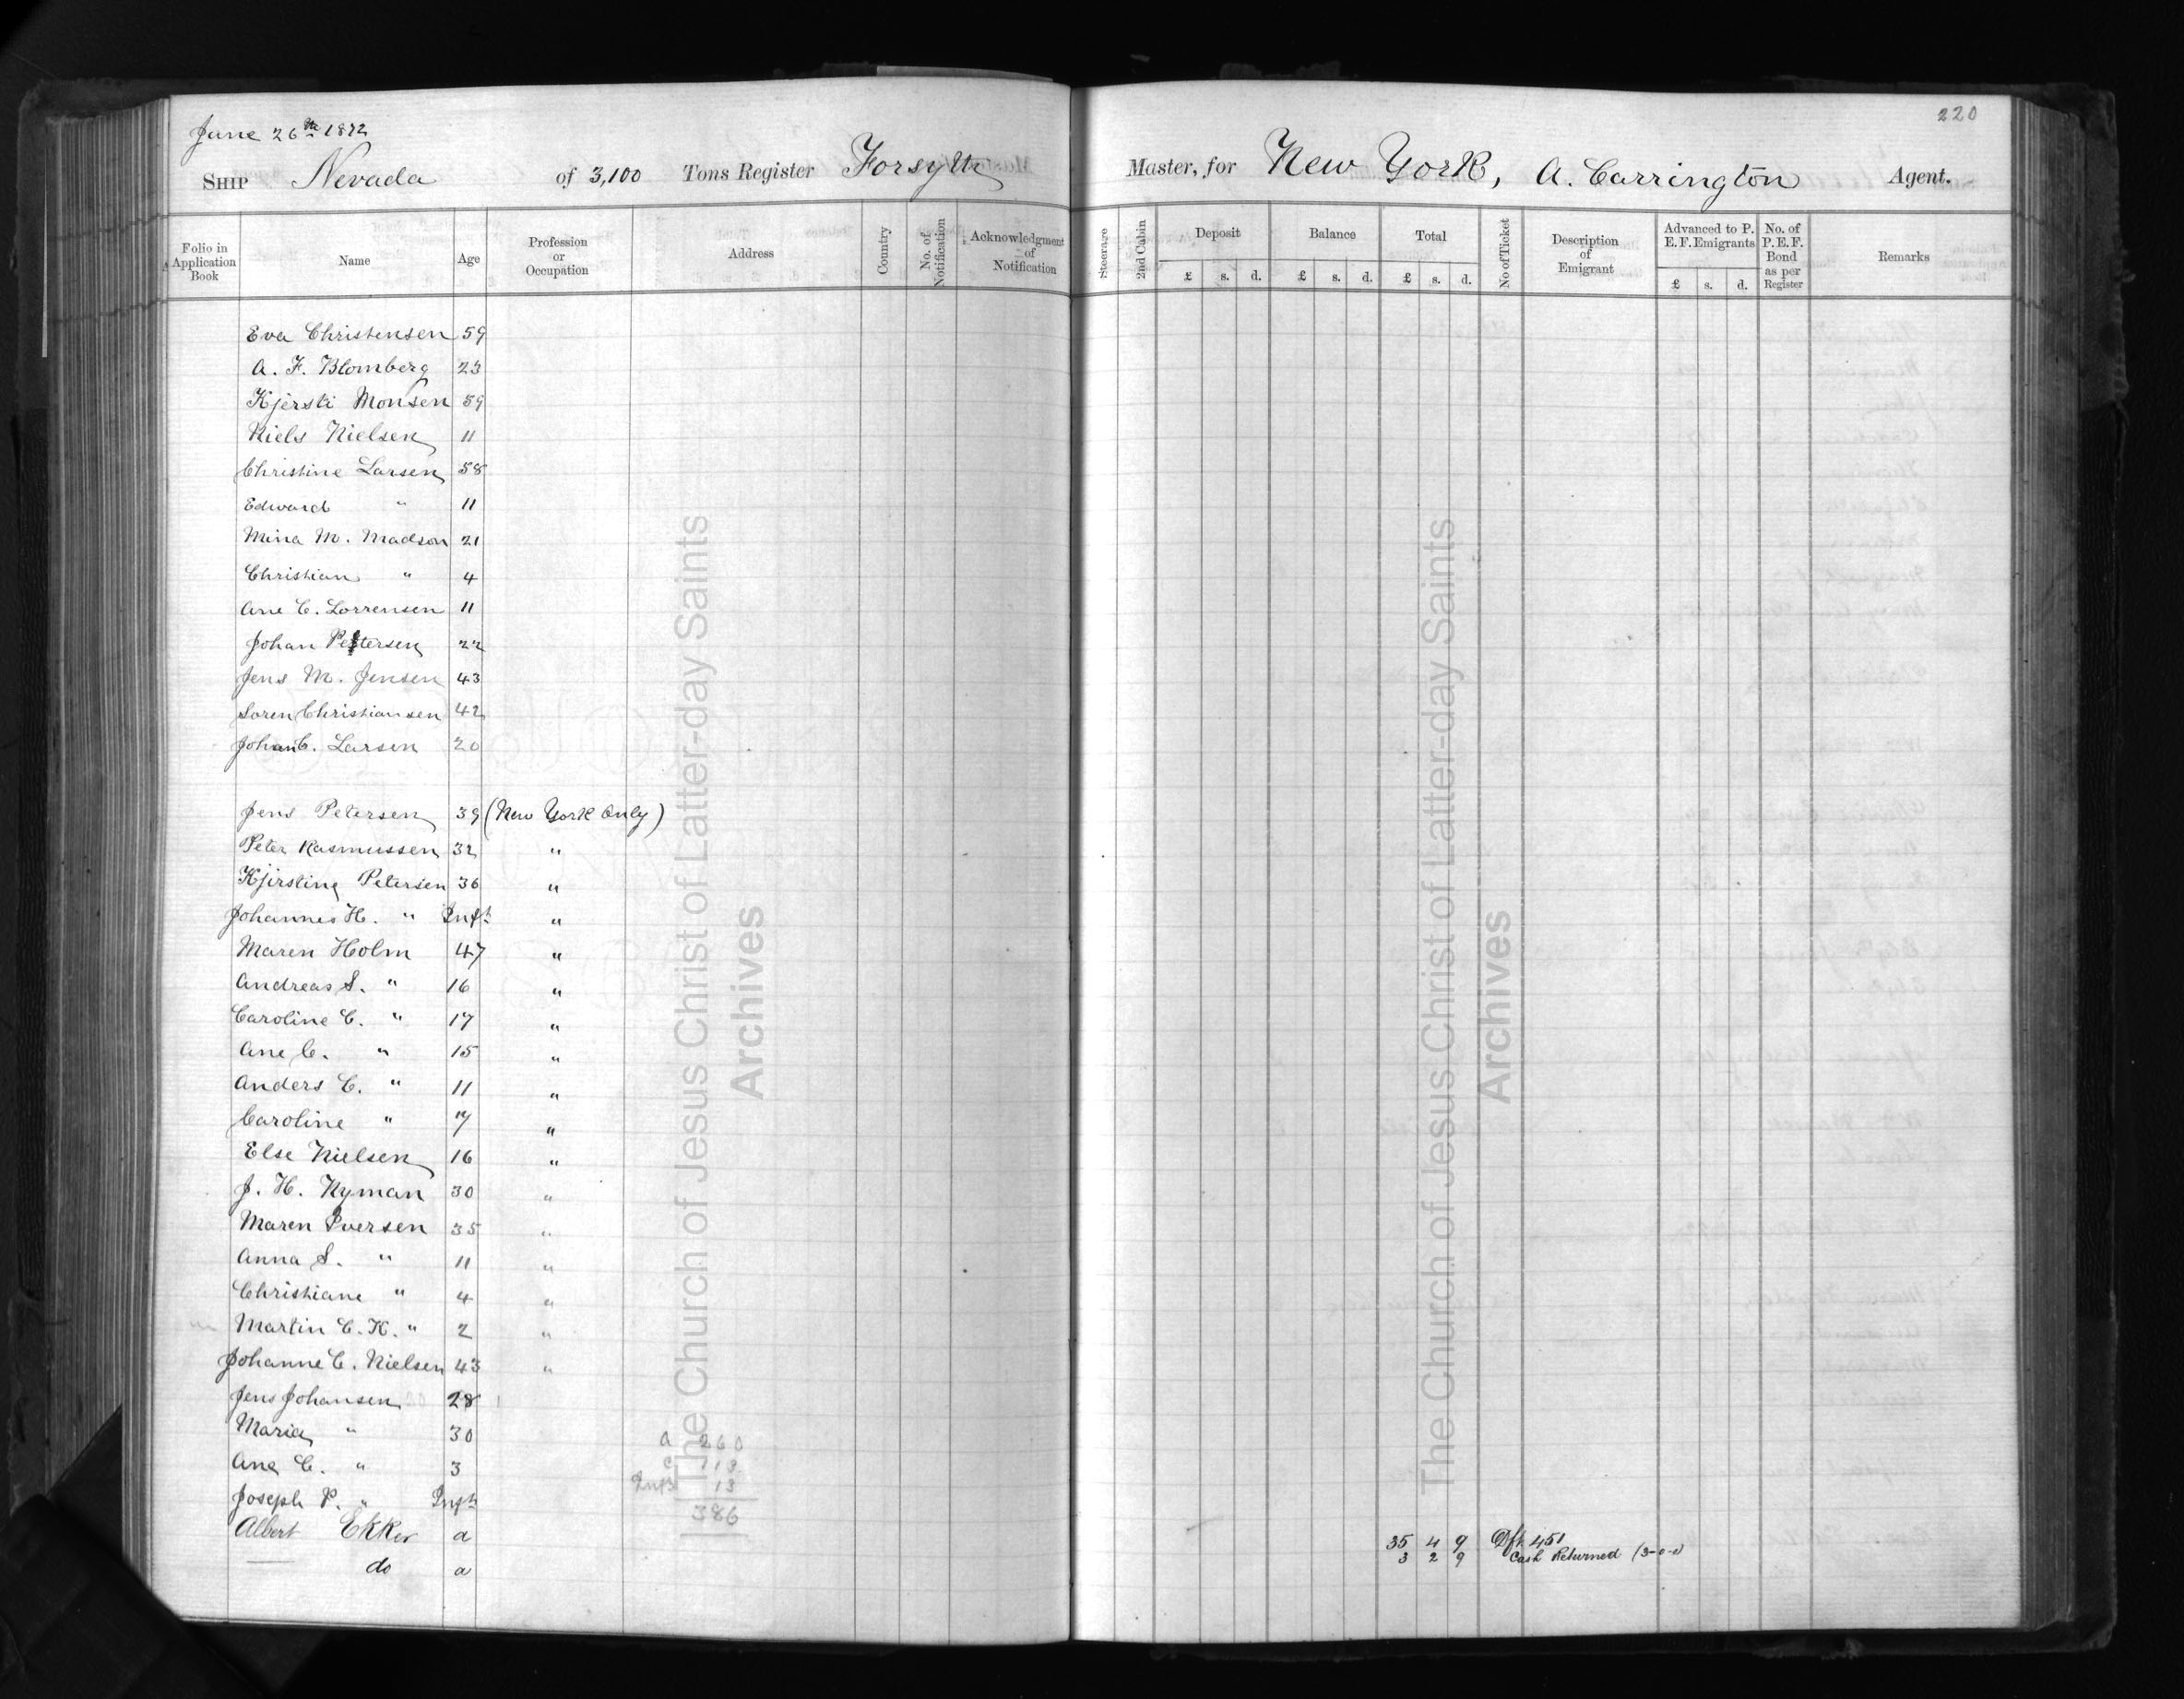 220
June 26th 1872
Ship Nevada of 3,100 Tons Register Forsyth Master, for New York, A. Carrington Agent.
Folio in Application Book
Name
Age
Profession or Occupation
Address
Country
No. of Notification
Acknowledgment of Notification
Steerage
2nd Cabin
Deposit £ s. d.
Balance £ s. d.
Total £ s. d.
No of Ticket
Description of Emigrant
Advanced to P. E. F. Emigrants £ s. d.
No. of P. E. F. Bond as per Register
Remarks
Eva Christensen 59
A. F. Blomberg 23
Kjersti Monsen 59
Niels Nielsen 11
Christine Larsen 58
Edward " 11
Mina M. Madson 21
Christian " 4
Ane C. Lorrensen 11
Johan Petersen 22
Jens M. Jensen 43
Soren Christiansen 42
Johan C. Larsen 20
Jens Petersen 39 (New York Only)
Peter Rasmussen 32 "
Kjirstine Petersen 36 "
Johannes H. " Inft "
Maren Holm 47 "
Andreas S. " 16 "
Caroline C. " 17 "
Ane C. " 15 "
Anders C. " 11 "
Caroline " 7 "
Else Nielsen 16 "
J. H. Nyman 30 "
Maren Iversen 35 "
Anna S. " 11 "
Christiane " 4 "
Martin C. K. " 2 "
Johanne C. Nielsen 43 "
Jens Johansen 28
Maria " 30
Ane C. " 3
Joseph P. " Inft
Albert Ekker a 35 4 9 Dft 451
do a 3 2 9 Cash Returned (3-0-0)
A 260
C 113
Inft 13
386
The Church of Jesus Christ of Latter-day Saints
Archives
The Church of Jesus Christ of Latter-day Saints
Archives